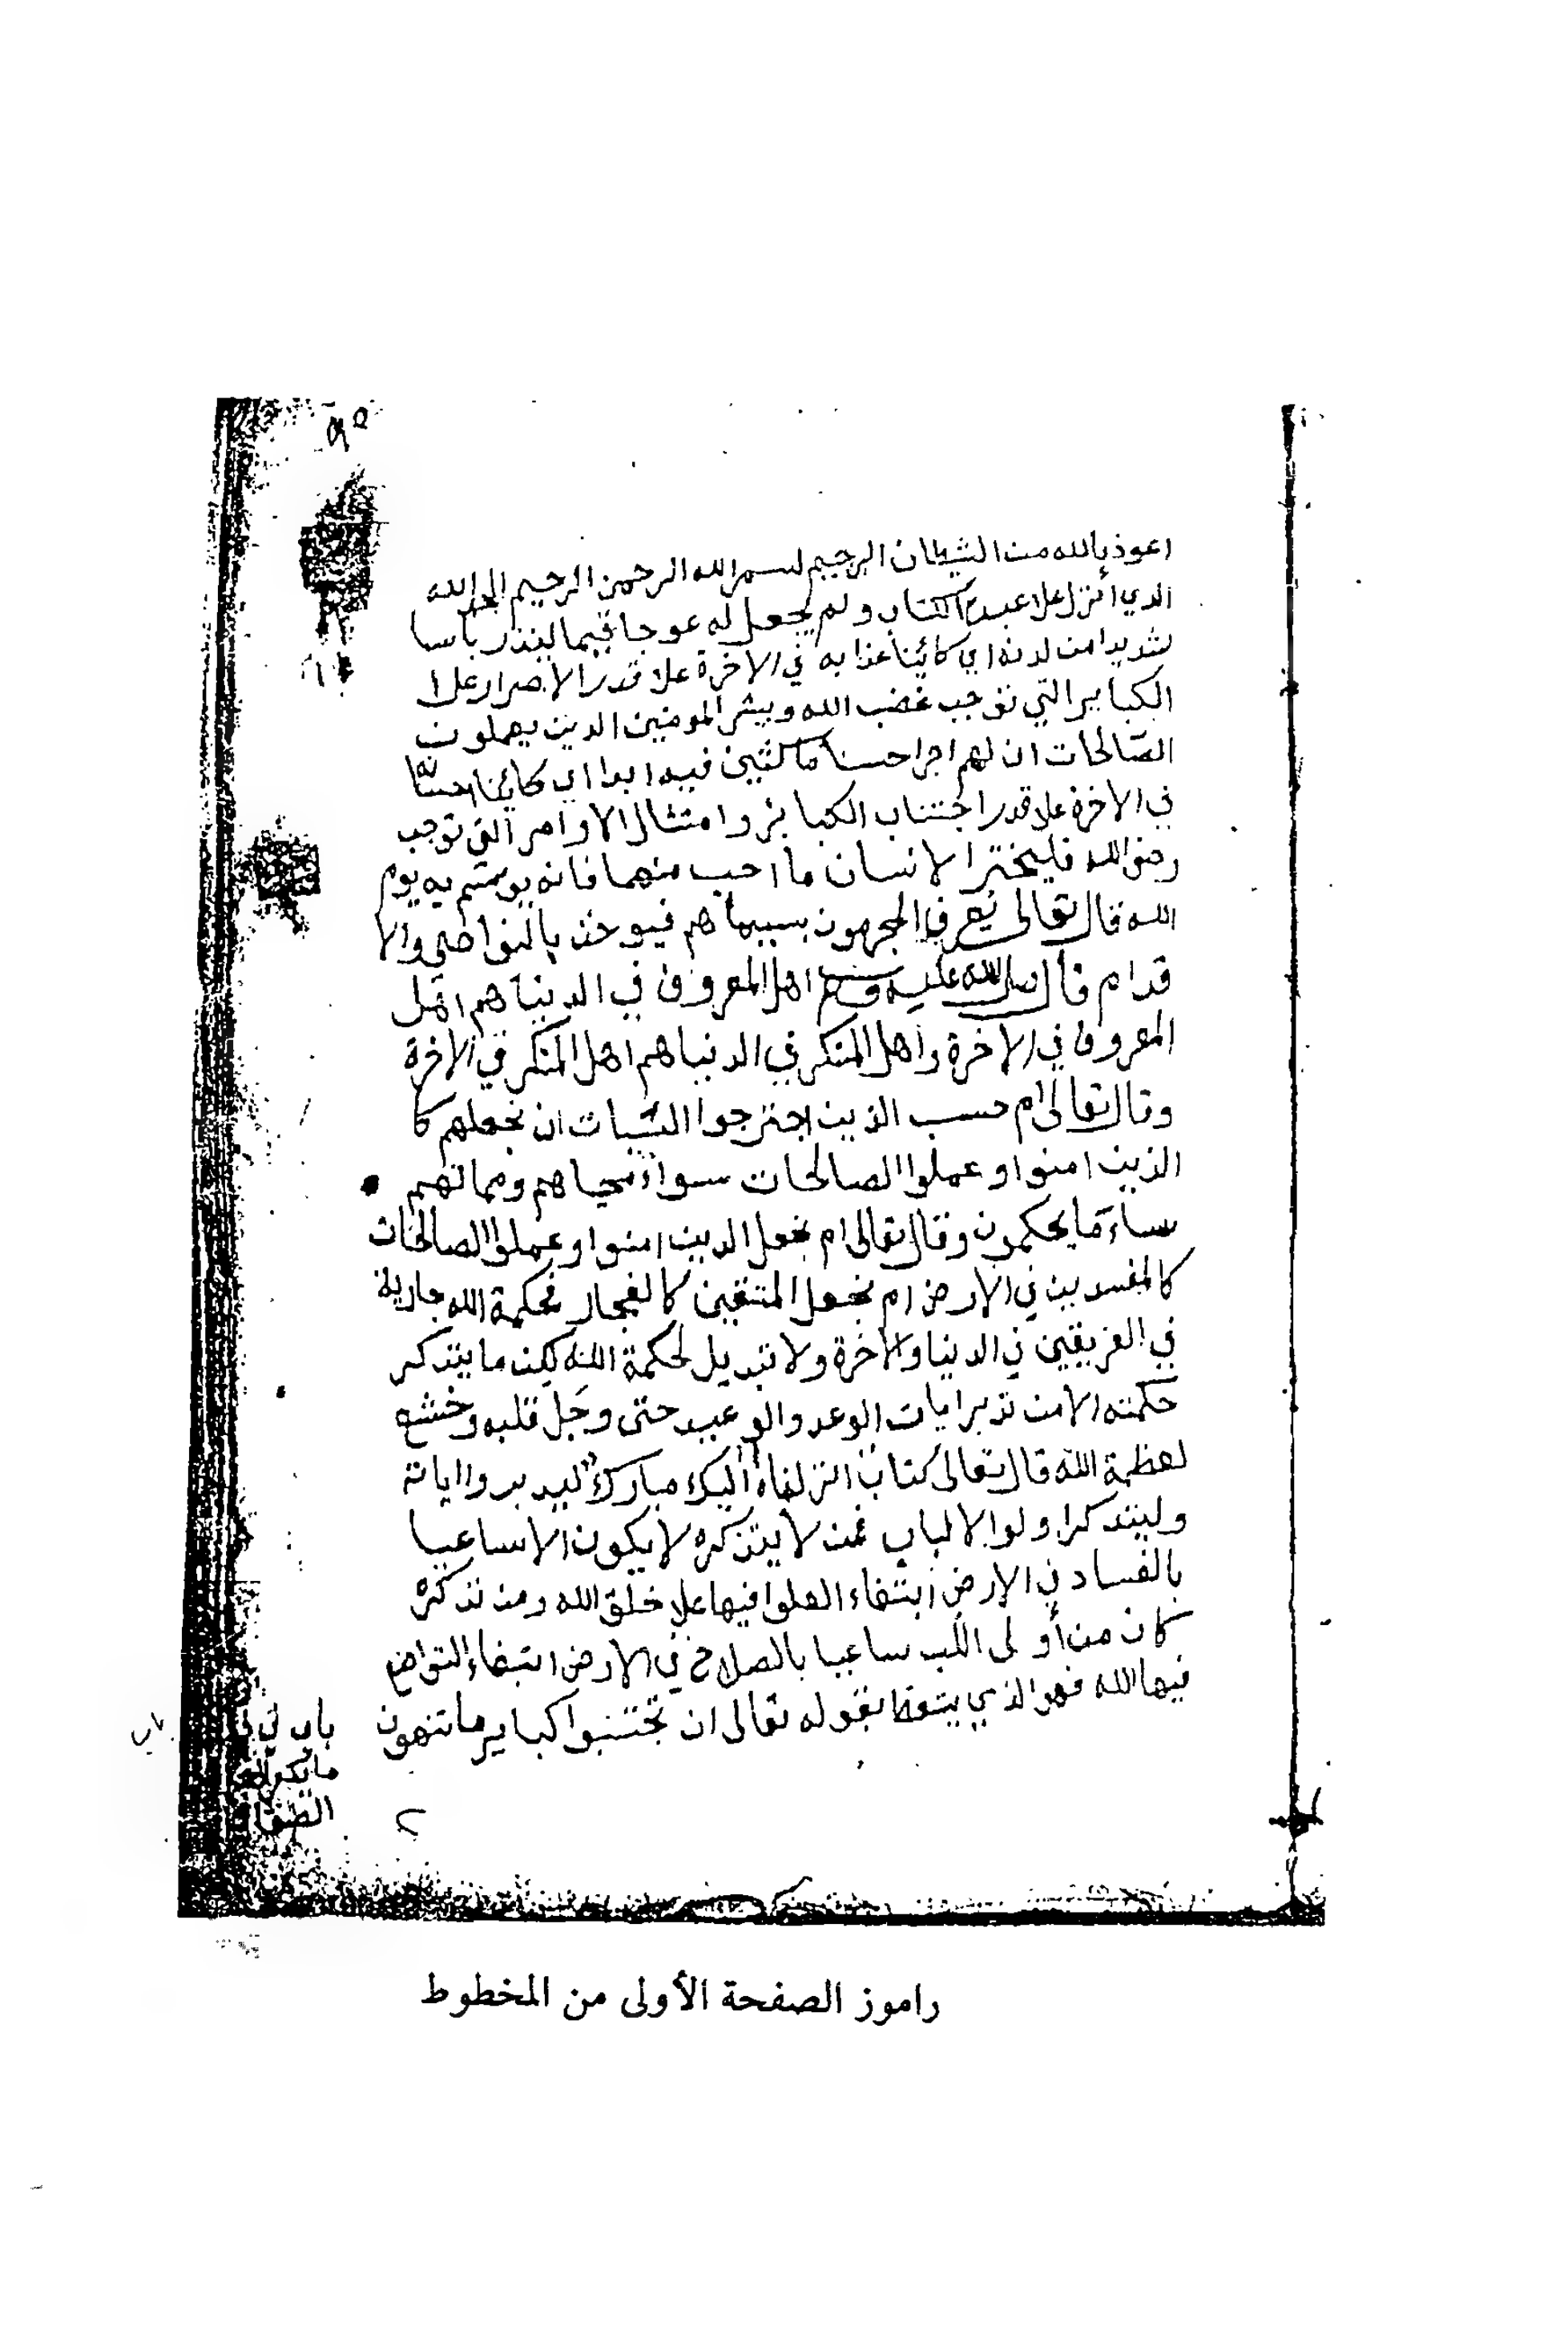 اعوذ بالله من الشيطان الرجيم بسم الله الرحمن الرحيم الحمد لله
الدي أنزل علا عبده الكتاب ولم يجعل له عوجا قيما لينذر بأسا
شديدا من لدنه اي كائنا عذابه في الاخرة علا قدر الاصرار علا
الكباير التي توجب غضب الله ويبشر المومنين الدين يعملون
الصالحات ان لهم اجرا حسنا ماكثين فيه ابدا اي كائنا
في الاخرة علا قدر اجتناب الكبائر وامتثال الاوامر التي توجب
رضى الله فليختر الانسان ما احب منهما فانه يوسم به يوم
الله قال تعالى يعرف المجرمون بسيماهم فيوخذ بالنواصي والا
قدام قال صلى الله عليه وسلم اهل المعروف في الدنيا هم اهل
المعروف في الاخرة واهل المنكر في الدنيا هم اهل المنكر في الاخرة
وقال تعالى ام حسب الذين اجترحوا السيات ان نجعلهم كا
الذين امنوا وعملوا الصالحات سواء محياهم ومماتهم
ساء ما يحكمون وقال تعالى ام نجعل الدين امنوا وعملوا الصالحات
كالمفسدين في الارض ام نجعل المتقين كالفجار فحكمة الله جارية
في الفريقين في الدنيا والاخرة ولا تبديل لحكمة الله لكن ما يتذكر
حكمته الا من تدبر ايات الوعد والوعيد حتى وجل قلبه وخشع
لعظمة الله قال تعالى كتاب انزلناه اليك مبارك ليدبروا اياته
وليتدكر اولوا الالباب فمن لا يتذكره لا يكون الا ساعيا
بالفساد في الارض ابتغاء العلوا فيها علا خلق الله ومن تذكره
كان من أولى اللب ساعيا بالصلاح في الارض ابتغاء التواضع
فيها الله فهو الذي يتعظ بقوله تعالى ان تجتنبوا كباير ما تنهون
باب
راموز الصفحة الأولى من المخطوط